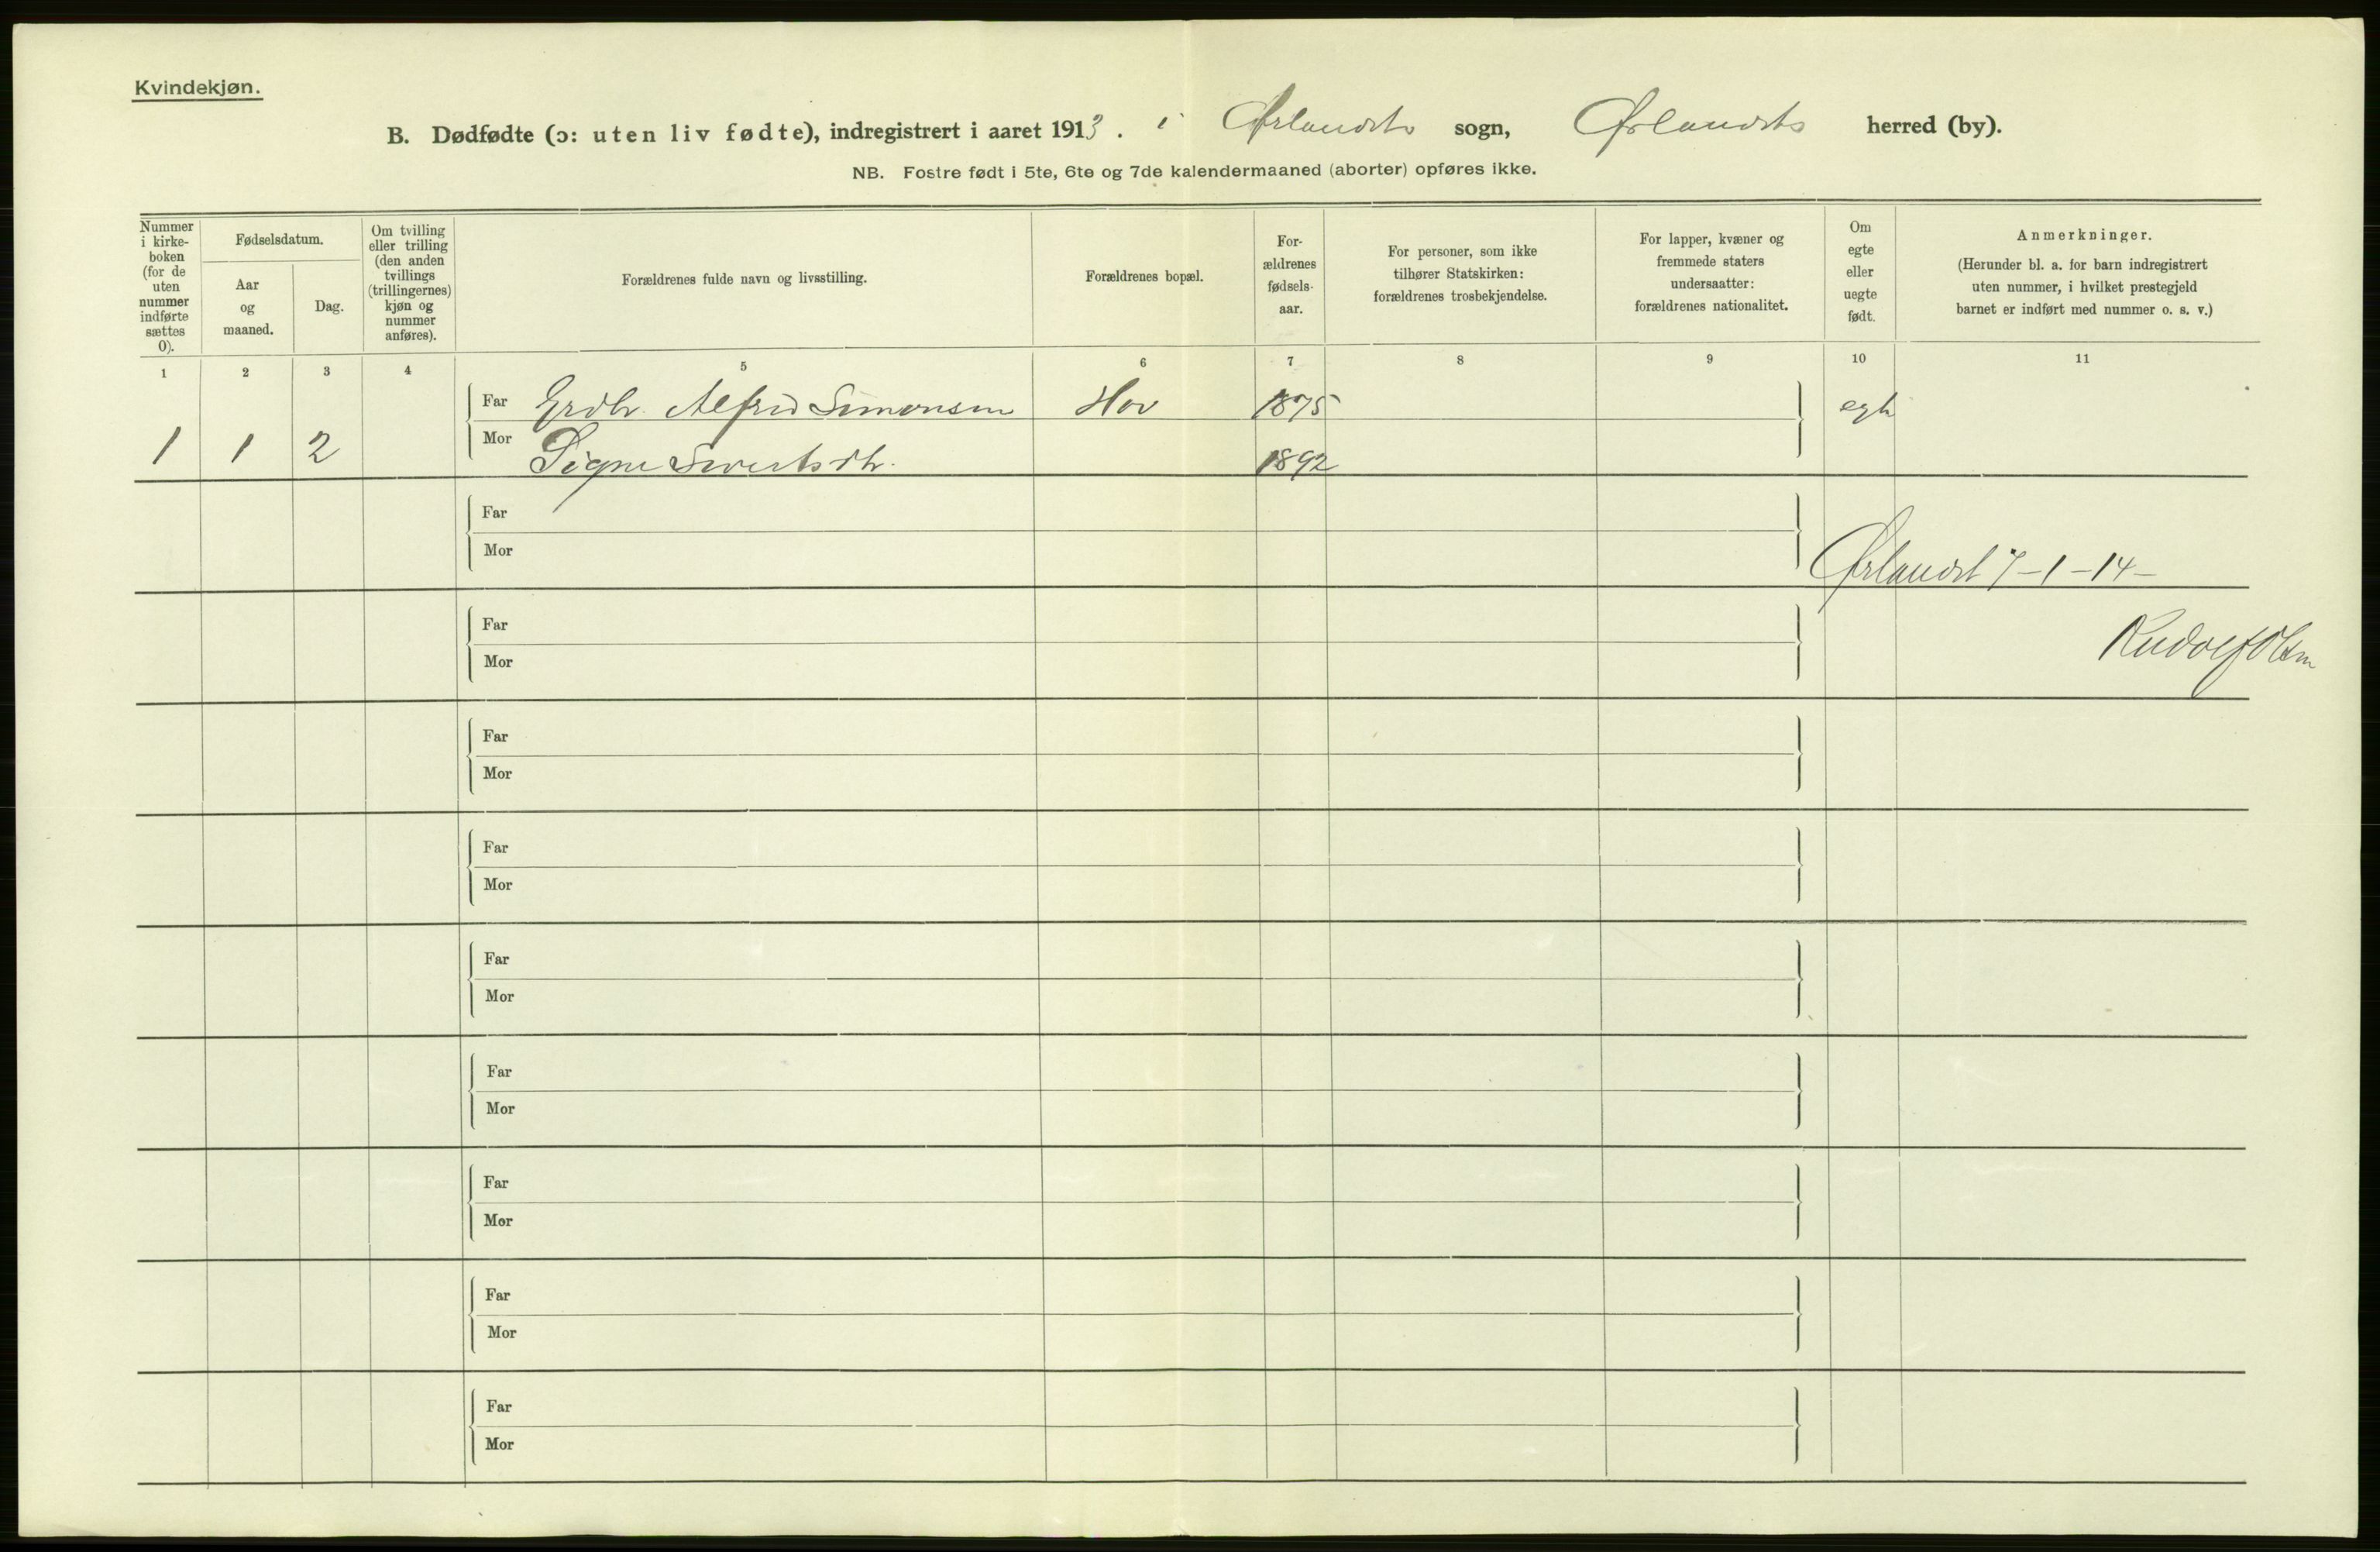 Kvindekjøn.
B. Dødfødte (ɔ: uten liv fødte), indregistrert i aaret 1913. i Ørlandets sogn, Ørlandets herred (by).
NB. Fostre født i 5te, 6te og 7de kalendermaaned (aborter) opføres ikke.
Nummer
i kirke-
boken
(for de
uten
nummer
indførte
sættes
0).
Fødselsdatum.
Aar
og
maaned.
Dag.
Om tvilling
eller trilling
(den anden
tvillings
(trillingernes)
kjøn og
nummer
anføres).
Forældrenes fulde navn og livsstilling.
Forældrenes bopæl.
For-
ældrenes
fødsels-
aar.
For personer, som ikke
tilhører Statskirken:
forældrenes trosbekjendelse.
For lapper, kvæner og
fremmede staters
undersaatter:
forældrenes nationalitet.
Om
egte
eller
uegte
født.
Anmerkninger.
(Herunder bl. a. for barn indregistrert
uten nummer, i hvilket prestegjeld
barnet er indført med nummer o. s. v.)
1 2 3 4 5 6 7 8 9 10 11
Far Grdbr. Alfred Simonsen Hov 1875 egte
1 1 2 Mor Signe 1892
Far
Mor
Ørlandet 7-1-14-
Far
Mor
Rudolf Olsen
Far
Mor
Far
Mor
Far
Mor
Far
Mor
Far
Mor
Far
Mor
Far
Mor